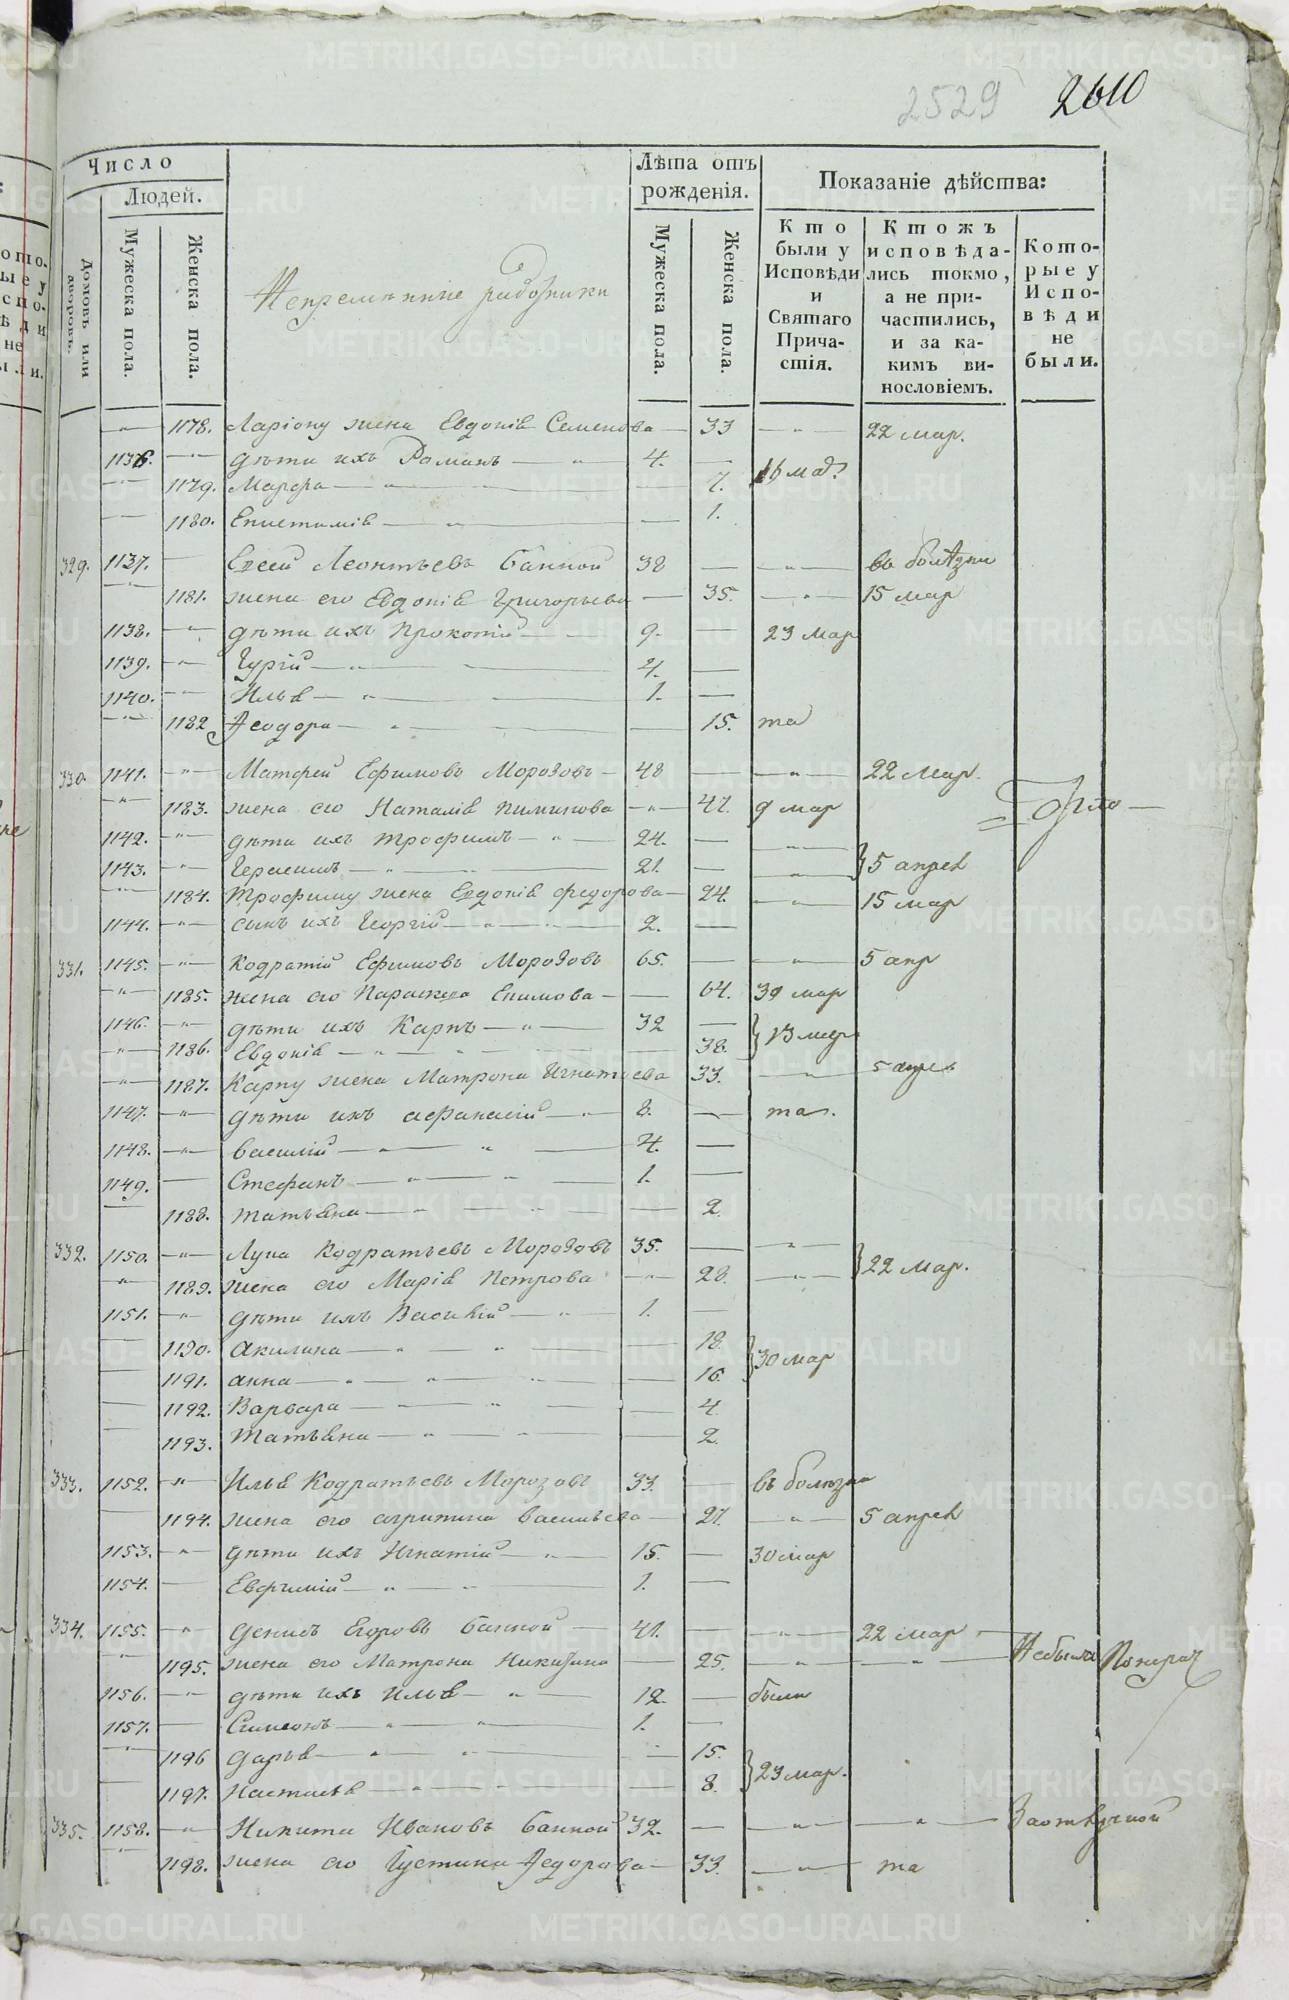 2529 2610
Число
Людей.
Домовъ или дворовъ.
Мужеска пола.
Женска пола.
Непремѣнные работники
Лѣта отъ рожденія.
Мужеска пола.
Женска пола.
Показаніе дѣйства:
Кто были у Исповѣди и Святаго Причастія.
Ктожъ исповѣдались токмо, а не причастились, и за какимъ винословіемъ.
Которые у Исповѣди не были.
1178. Ларіону жена Евдокія Семенова 33 22 мар.
1136. дѣти ихъ Романъ 4.
1179. Марфа 7. 16 мар
1180. Епистимія 1.
329. 1137. Леонтьевъ Банной 38 въ болѣзни
1181. жена его Евдокія Григорьева 35. 15 мар
1138. дѣти ихъ Прокопій 9. 23 мар
1139. Гурій 4.
1140. Илья 1.
1182 Феодора 15. та
330. 1141. Матфей Ефимовъ Морозовъ 48 22 мар.
1183. жена его Наталія Пиминова 47. 9 мар
1142. дѣти ихъ Трофимъ 24.
1143. Герасимъ 21. 5 апрел
1184. Трофиму жена Евдокія Федорова 24. 15 мар
1144. сынъ ихъ Георгій 2.
331. 1145. Кодратій Ефимовъ Морозовъ 65. 5 апр
1185. жена его Параскева Екимова 64. 30 мар
1146. дѣти ихъ Карпъ 32
1186. Евдокія 38. 13 мар
1187. Карпу жена Матрона Игнатьева 33. 5 апрел
1147. дѣти ихъ Афанасій 8. та.
1148. Василій 4.
1149. Стефанъ 1.
1188. Татьяна 2
332. 1150. Лука Кодратьевъ Морозовъ 35.
1189. жена его Марія Петрова 28. 22 мар.
1151. дѣти ихъ Василій 1.
1190. Акилина 18.
1191. Анна 16. 30 мар
1192. Варвара 4.
1193. Татьяна 2.
333. 1152. Илья Кодратьевъ Морозовъ 33. въ болѣзни
1194. жена его Агрипина Васильева 27. 5 апрел
1153. дѣти ихъ Игнатій 15. 30 мар
1154. Евфимій 1.
334. 1155. Денисъ Егоровъ Банной 41. 22 мар
1195. жена его Матрона Никитина 25. Не была
1156. дѣти ихъ Илья 12. были
1157. Симеонъ 1.
1196 Дарья 15.
1197. Настасья 8. 23 мар.
335. 1158. Никита Ивановъ Банной 32. За отлучкой
1198. жена его Густина Федорова 33. та
METRIKI.GASO-URAL.RU